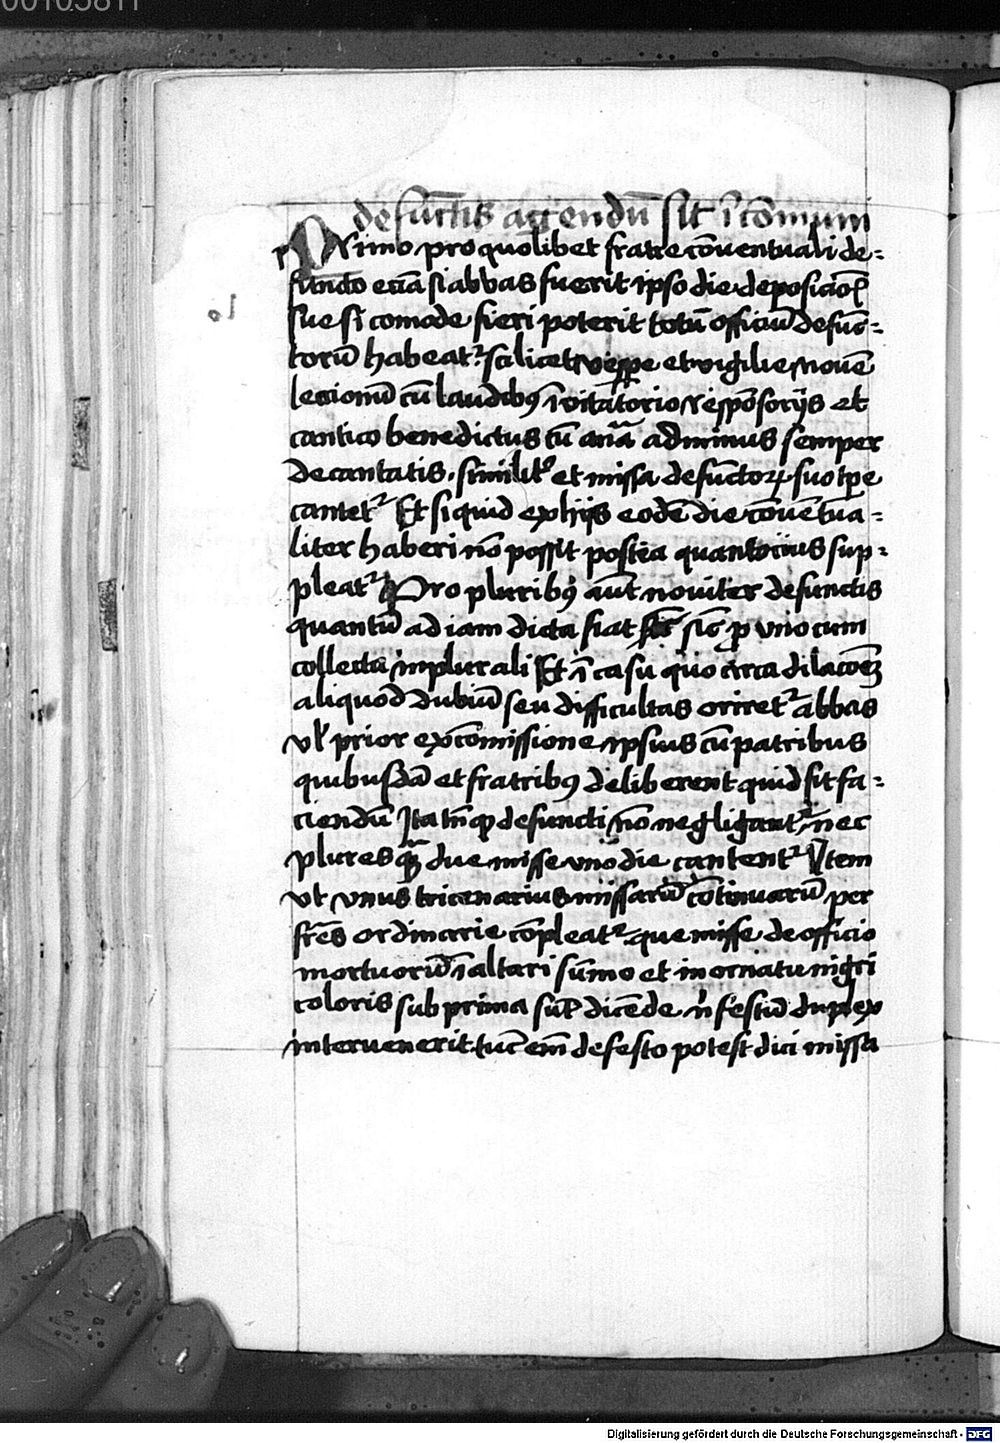 00105811
defūctis agendū sit ī cōmuni
Primo pro quolibet fratre cōuentuali de-
functo eciā si abbas fuerit ipso die deposicioīs
sue si comode fieri poterit totū officiū defūc-
torū habeatʳ scilicet vespe et vigilie nouē
lectionū cū laudibꝰ īvitatorio respōsorijs et
cantico benedictus cū añā adminus semper
decantatis. similitᵉ et missa defūctoꝝ suo tpe
cantetʳ Et si quid ex hijs eodē die cōuētua-
liter haberi nō possit postea quantocius sup-
pleatʳ Pro pluribꝰ aūt nouiter defunctis
quantū ad iam dicta fiat sic̄ ꝓ vno cum
collecta in plurali Et ī casu quo circa dilacōem
aliquod dubiū seu difficultas oriretʳ abbas
vl prior ex cōmissione ipsius cū patribus
quibusdā et fratribꝰ deliberent quid sit fa-
ciendū Ita tn̄ ꝙ defuncti nō negligantʳ nec
plures qᵃꝫ due misse vno die cantentʳ Item
vt vnus tricenarius missarū cōtinuarū per
fr̄es ordinarie cōpleatʳ que misse de officio
mortuorū ī altari sūmo et in ornatu nigri
coloris sub prima sūt dicēde nⁱ festū duplex
intervenerit tūc em̄ de festo potest dici missa
Digitalisierung gefördert durch die Deutsche Forschungsgemeinschaft - DFG